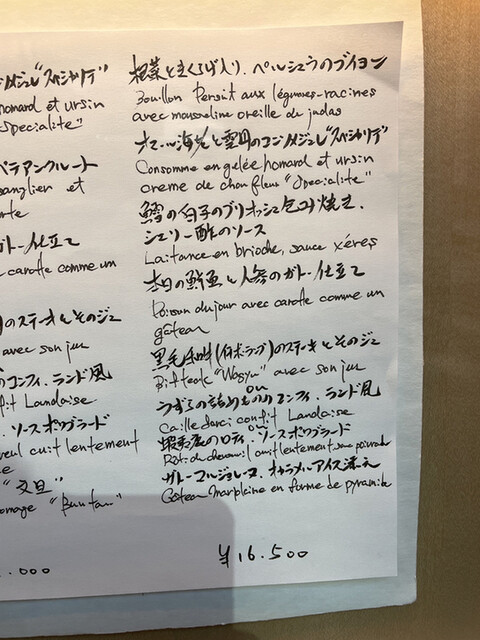 ンソメジュレ"スペシャリテ"
homard et ursin
specialite"
ペテアンクルート
sanglier et
rte
ガトー仕立て
carotte comme un
のステーキとそのジュ
avec son jus
のコンフィ、ランド風
fit Landaise
、ソースポワブラード
veul cuit lentement
e
"文旦"
omage "Buntan"
.000
根菜ときくらげ入り、ペルシュウのブイヨン
Bouillon Persit aux légumes-racines
avec mousseline oreille de judas
オマール海老と雲丹のコンソメジュレ"スペシャリテ"
Consomme en gelée homard et ursin
creme de chou fleur "Specialite"
鱈の白子のブリオッシュ包み焼き、
シェリー酢のソース
Laitance en brioche, sauce xéres
本日の鮮魚と人参のガトー仕立て
Poisson du jour avec carotte comme un
gâteau
黒毛和牛(ランプ)のステーキとそのジュ
Bifteck "Wagyu" avec son jus
ou
うずらの詰めもののコンフィ、ランド風
Caille farci confit Landaise
ou
蝦夷鹿のロティ、ソースポワブラード
Roti de chevreuil cuit lentement sauce poivrade
ガトーマルジョレーヌ、キャラメルアイス添え
Gâteau Marjolaine en forme de pyramide
¥16.500